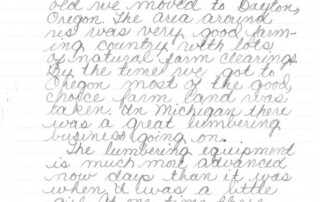 old we moved to Dayton,
Oregon. The area around
us was very good farm-
ing country with lots
of natural farm clearings.
By the time we got to
Oregon most of the good,
choice farm land was
taken. In Michigan there
was a great lumbering
business going on.
The lumbering equipment
is much more advanced
now days than it was
when I was a little
girl. At one time there